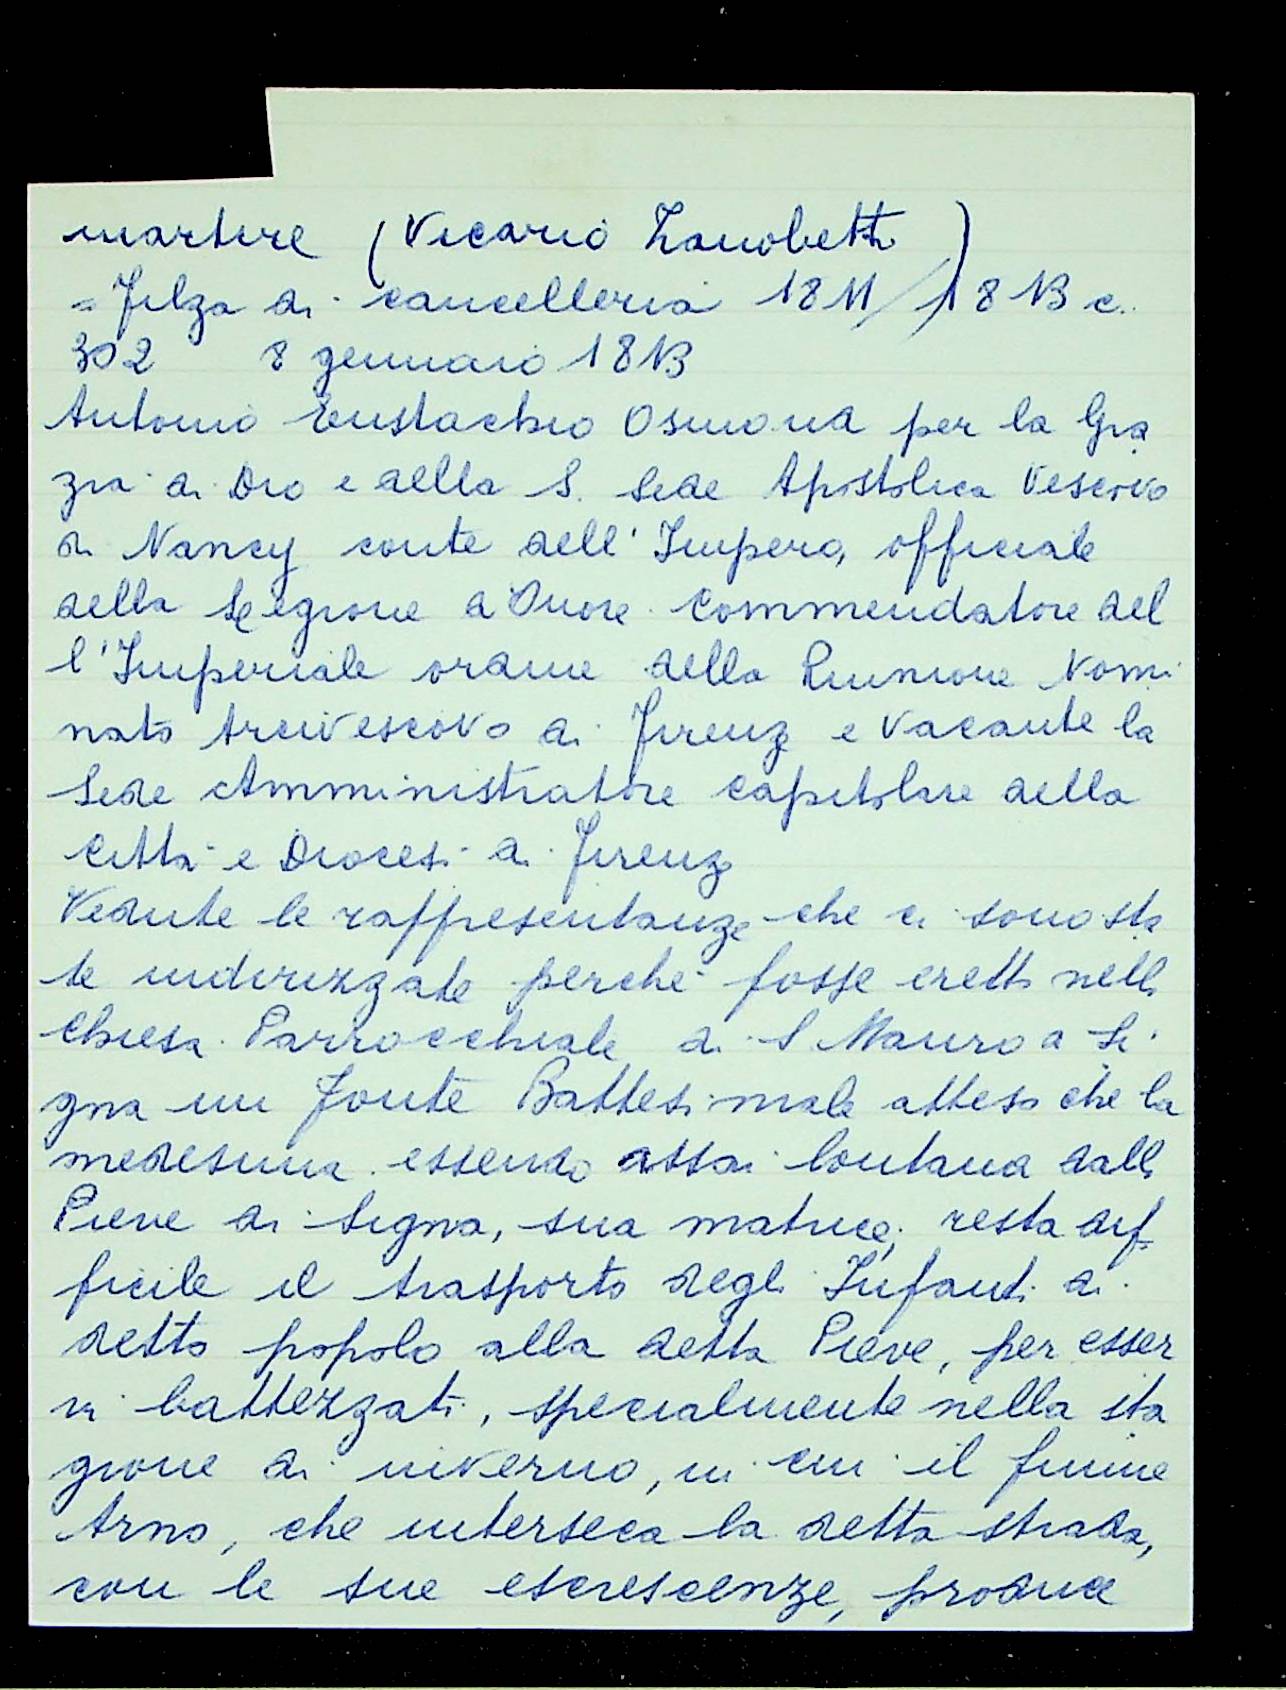 martire (Vicario Zanobetti)
= Filza di cancelleria 1811/1813 c.
302 8 gennaio 1813
Antonio Eustachio Osmond per la Gra
zia di Dio e della S. Sede Apostolica Vescovo
di Nancy conte dell'Impero, officiale
della Legione d'Onore Commendatore del
l'Imperiale ordine della Riunione Nomi
nato Arcivescovo di Firenze e vacante la
Sede Amministratore capitolare della
Città e Diocesi di Firenze
Vedute le rappresentanze che ci sono sta
te indirizzate perché fosse eretto nella
Chiesa Parrocchiale di S Mauro a Si
gna un Fonte Battesimale atteso che la
medesima essendo assai lontana dalla
Pieve di Signa, sua matrice, resta dif
ficile il trasporto degli Infanti di
detto popolo alla detta Pieve, per esser
vi battezzati, specialmente nella sta
gione di inverno, in cui il fiume
Arno, che interseca la detta strada,
con le sue escrescenze, produce